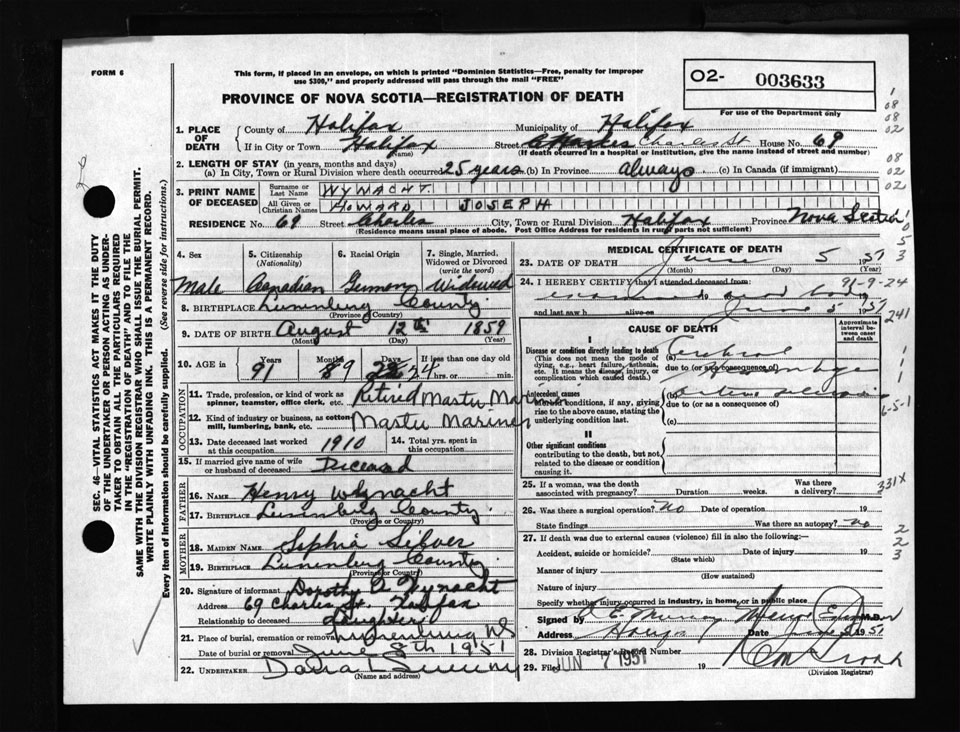 FORM 6
This form, if placed in an envelope, on which is printed "Dominion Statistics—Free, penalty for improper
use $300," and properly addressed will pass through the mail "FREE"
O2- 003633
For use of the Department only
PROVINCE OF NOVA SCOTIA—REGISTRATION OF DEATH
1. PLACE OF DEATH
County of Halifax Municipality of Halifax
If in City or Town Halifax Street Charles St House No. 69
(Name) (If death occurred in a hospital or institution, give the name instead of street and number)
2. LENGTH OF STAY (in years, months and days)
(a) In City, Town or Rural Division where death occurred 25 years (b) In Province Always (c) In Canada (if immigrant)
3. PRINT NAME OF DECEASED
Surname or Last Name WYNACHT.
All Given or Christian Names HOWARD JOSEPH
RESIDENCE No. 69 Street Charles City, Town or Rural Division Halifax Province Nova Scotia
(Residence means usual place of abode. Post Office Address for residents in rural parts not sufficient)
4. Sex 5. Citizenship (Nationality) 6. Racial Origin 7. Single, Married, Widowed or Divorced (write the word)
Male Canadian German Widowed
8. BIRTHPLACE Lunenburg County
(Province or Country)
9. DATE OF BIRTH August 12th 1859
(Month) (Day) (Year)
10. AGE in Years Months Days If less than one day old
91 9 24 hrs. or min.
OCCUPATION
11. Trade, profession, or kind of work as spinner, teamster, office clerk. etc. Retired Master Mariner
12. Kind of industry or business, as cotton-mill, lumbering, bank, etc. Master Mariner
13. Date deceased last worked at this occupation 1910 14. Total yrs. spent in this occupation
15. If married give name of wife or husband of deceased Deceased
FATHER
16. NAME Henry Wynacht
17. BIRTHPLACE Lunenburg County
(Province or Country)
MOTHER
18. MAIDEN NAME Sophia Silver
19. BIRTHPLACE Lunenburg County
(Province or Country)
20. Signature of informant Dorothy A Wynacht
Address 69 Charles St. Halifax
Relationship to deceased Daughter
21. Place of burial, cremation or removal Lunenburg NS
Date of burial or removal June 8th 1951
22. UNDERTAKER
(Name and address)
MEDICAL CERTIFICATE OF DEATH
23. DATE OF DEATH June 5 1951
(Month) (Day) (Year)
24. I HEREBY CERTIFY that I attended deceased from 91-9-24
examined
and last saw h alive on June 5 1951
CAUSE OF DEATH
Approximate interval between onset and death
I
Disease or condition directly leading to death (a) Cerebral
(This does not mean the mode of dying, e.g., heart failure, asthenia, etc. It means the disease, injury, or complication which caused death.)
due to (or as a consequence of)
Antecedent causes (b)
Morbid conditions, if any, giving rise to the above cause, stating the underlying condition last.
due to (or as a consequence of)
(c)
II
Other significant conditions
contributing to the death, but not related to the disease or condition causing it.
25. If a woman, was the death associated with pregnancy? Duration weeks. Was there a delivery?
26. Was there a surgical operation? No Date of operation 19
State findings Was there an autopsy? No
27. If death was due to external causes (violence) fill in also the following:—
Accident, suicide or homicide? Date of injury 19
(State which)
Manner of injury
(How sustained)
Nature of injury
Specify whether injury occurred in industry, in home, or in public place
Signed by M.D.
Address Halifax Date June 1951
28. Division Registrar's Record Number
29. Filed JUN 7 1951 19
(Division Registrar)
SEC. 46—VITAL STATISTICS ACT MAKES IT THE DUTY
OF THE UNDERTAKER OR PERSON ACTING AS UNDER-
TAKER TO OBTAIN ALL THE PARTICULARS REQUIRED
IN THE "REGISTRATION OF DEATH" AND TO FILE THE
SAME WITH THE DIVISION REGISTRAR WHO SHALL ISSUE THE BURIAL PERMIT.
WRITE PLAINLY WITH UNFADING INK. THIS IS A PERMANENT RECORD.
Every item of information should be carefully supplied. (See reverse side for instructions.)
1
08
08
02
08
02
02
5
3
241
1
1
1
331X
2
2
3